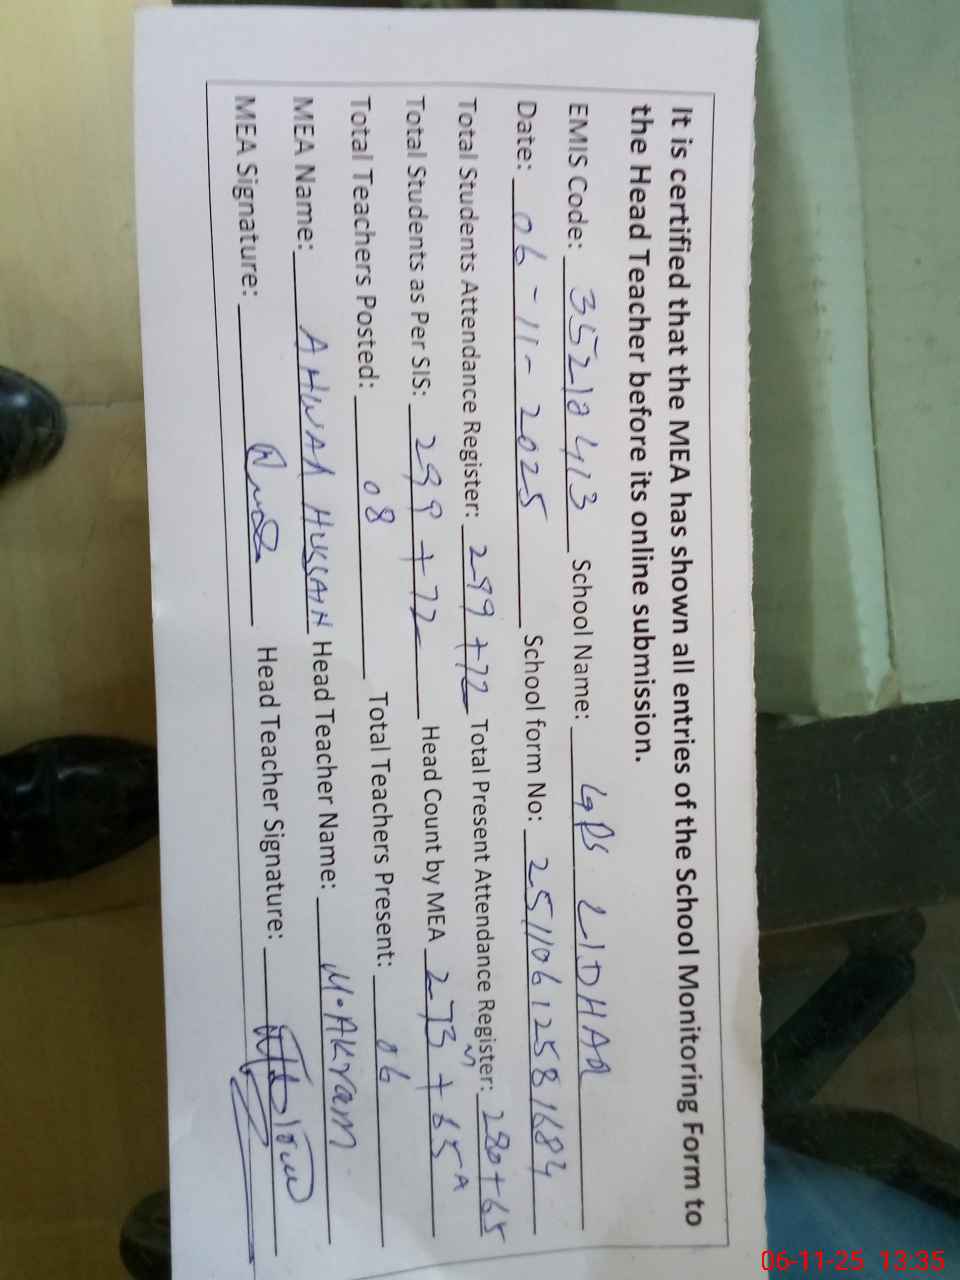 It is certified that the MEA has shown all entries of the School Monitoring Form to
the Head Teacher before its online submission.
EMIS Code: 35210413 School Name: GPS LIDHAR
Date: 06-11-2025 School form No: 25110612581684
Total Students Attendance Register: 299+72 Total Present Attendance Register: 280+65
Total Students as Per SIS: 299+72 Head Count by MEA 273+65 A
Total Teachers Posted: 08 Total Teachers Present: 06
MEA Name: HUSSAIN Head Teacher Name: M.AKram
MEA Signature: Head Teacher Signature:
06-11-25 13:35